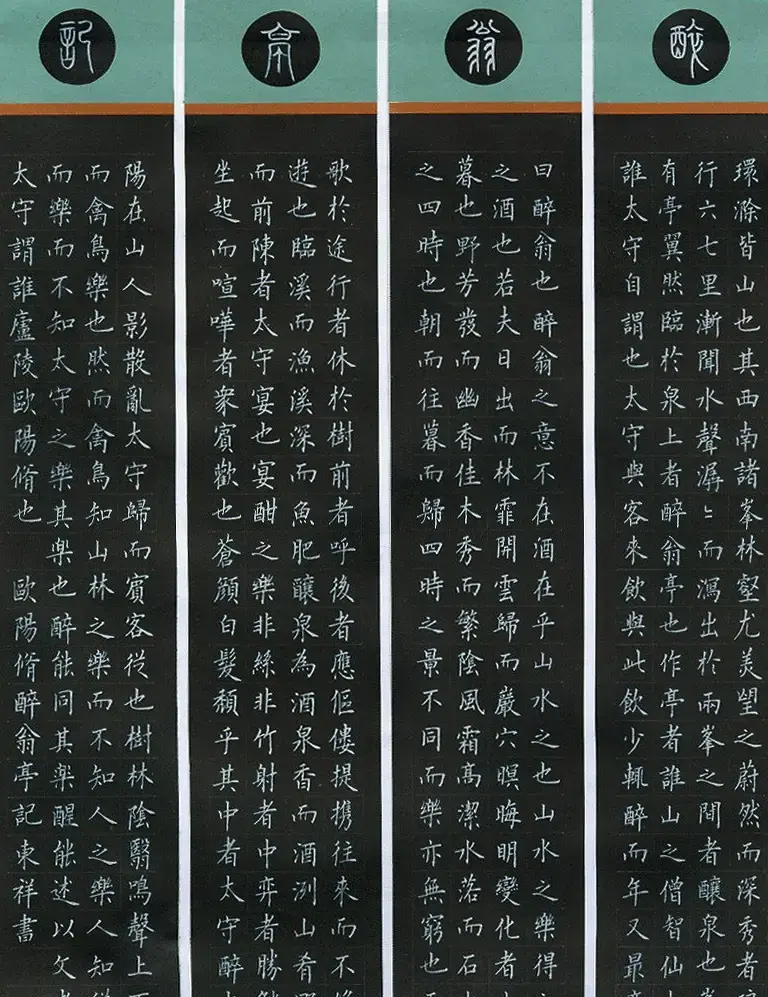 醉
環滁皆山也其西南諸峯林壑尤美望之蔚然而深秀者
行六七里漸聞水聲潺〻而瀉出於兩峯之間者釀泉也
有亭翼然臨於泉上者醉翁亭也作亭者誰山之僧智仙
誰太守自謂也太守與客來飲與此飲少輒醉而年又最
翁
曰醉翁也醉翁之意不在酒在乎山水之也山水之樂得
之酒也若夫日出而林霏開雲歸而巖穴暝晦明變化者
暮也野芳發而幽香佳木秀而繁陰風霜高潔水落而石
之四時也朝而往暮而歸四時之景不同而樂亦無窮也
亭
歌於途行者休於樹前者呼後者應傴僂提携往來而不
遊也臨溪而漁溪深而魚肥釀泉為酒泉香而酒洌山肴
而前陳者太守宴也宴酣之樂非絲非竹射者中弈者勝
坐起而喧嘩者衆賓歡也蒼顏白髮頹乎其中者太守醉
記
陽在山人影散亂太守歸而賓客從也樹林陰翳鳴聲上
而禽鳥樂也然而禽鳥知山林之樂而不知人之樂人知從
而樂而不知太守之樂其楽也醉能同其楽醒能述以文
太守謂誰廬陵歐陽脩也 歐陽脩醉翁亭記東祥書